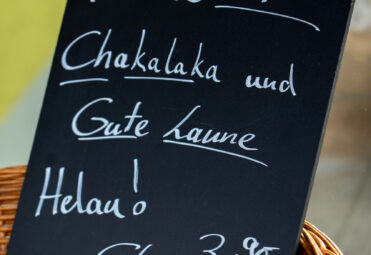 Chakalaka und
Gute Laune
Helau!
3.95